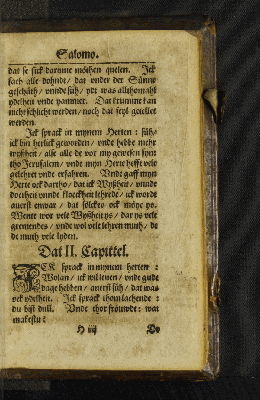 Salomo.
dat se sick darinne möthen quelen. Jck
sach alle dohndt / dat vnder der Sünne
geschüth / vnnde süh / ydt was allthomahl
ydelheit vnde yammer. Dat krumme kan
nicht schlicht werden / noch dat feyl getellet
werden.
Jck sprack in mynem Herten : süh /
ick bin herlick geworden / vnde hebbe mehr
wyßheit / alse alle de vor my gewesen synt
tho Jerusalem / vnde myn Herte hefft vele
gelehret vnde erfahren. Vnde gaff myn
Herte ock dartho / dat ick Wyßheit / vnnde
dorheit vnnde kloeckheit lehrede / ick wordt
auerst enwar / dat sölckes ock möye ys.
Wente wor vele Wyßheit ys / dar ys vele
gremendes / vnde wol vele lehren muth / de
de muth vele lyden.
Dat II. Capittel.
JCK sprack in mynem herten :
Wolan / ick wil leuen / vnde gude
dage hebben / auerst süh / dat was
ock ydelheit. Jck sprack thom lachende :
du bist dull. Vnde thor fröuwde : wat
makestu ?
H iiij